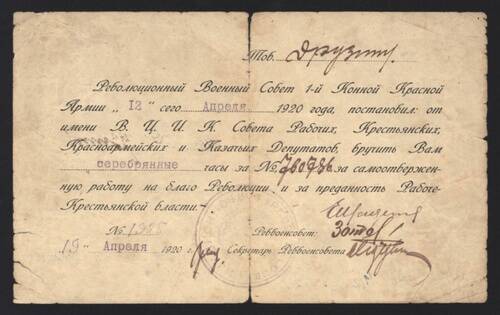 Тов. Друзину.
Революционный Военный Совет 1-й Конной Красной
Армии „12" сего Апреля 1920 года, постановил: от
имени В. Ц. И. К. Совета Рабочих, Крестьянских,
Красноармейских и Казачьих Депутатов, вручить Вам
серебрянные часы за № 760736 за самоотвержен-
ную работу на благо Революции и за преданность Рабоче-
Крестьянской власти.-
№ 1955
Реввоенсовет:
19" Апреля 1920 г.
Секретарь Реввоенсовета